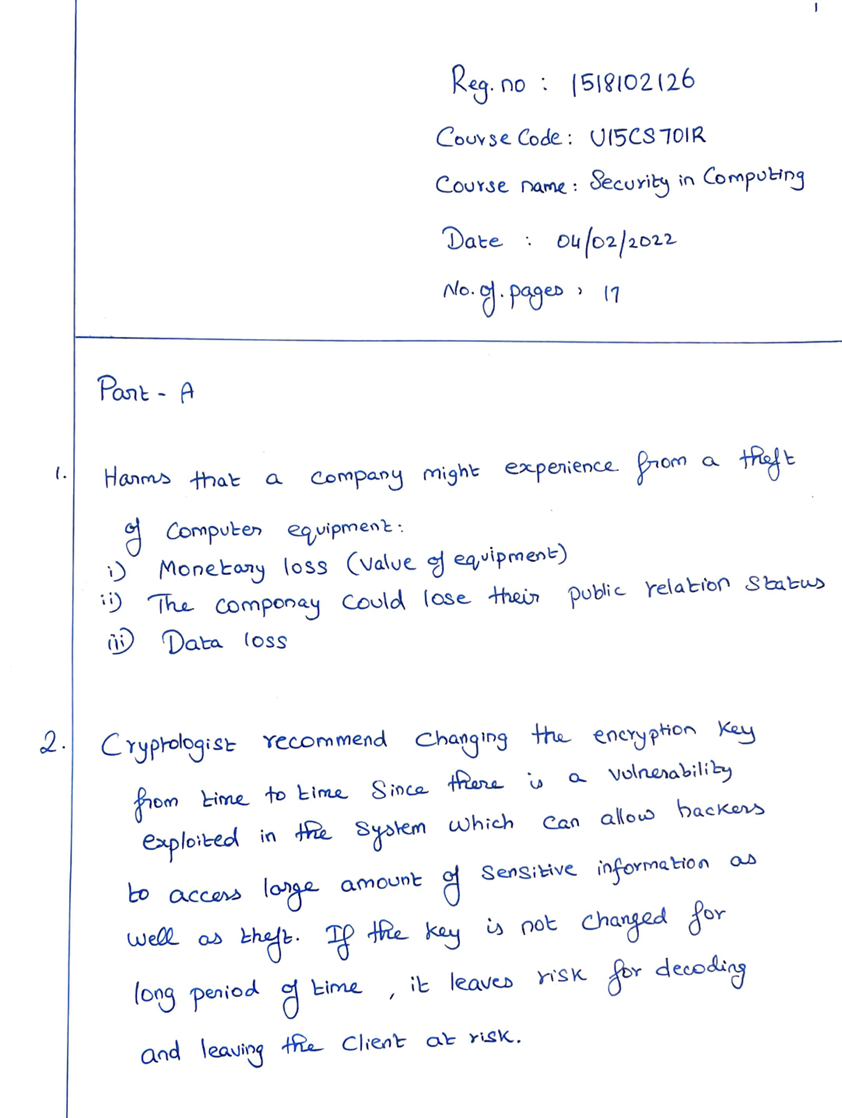 1
Reg. no : 1518102126
Course Code : U15CS701R
Course name : Security in Computing
Date : 04/02/2022
No. of. pages : 17
Part - A
1. Harms that a company might experience from a theft
of Computer equipment :
i) Monetary loss (Value of equipment)
ii) The componay Could lose their public relation Status
iii) Data loss
2. Cryptologist recommend Changing the encryption Key
from time to time Since there is a vulnerability
exploited in the System which can allow hackers
to access large amount of Sensitive information as
well as theft. If the key is not changed for
long period of time , it leaves risk for decoding
and leaving the Client at risk.